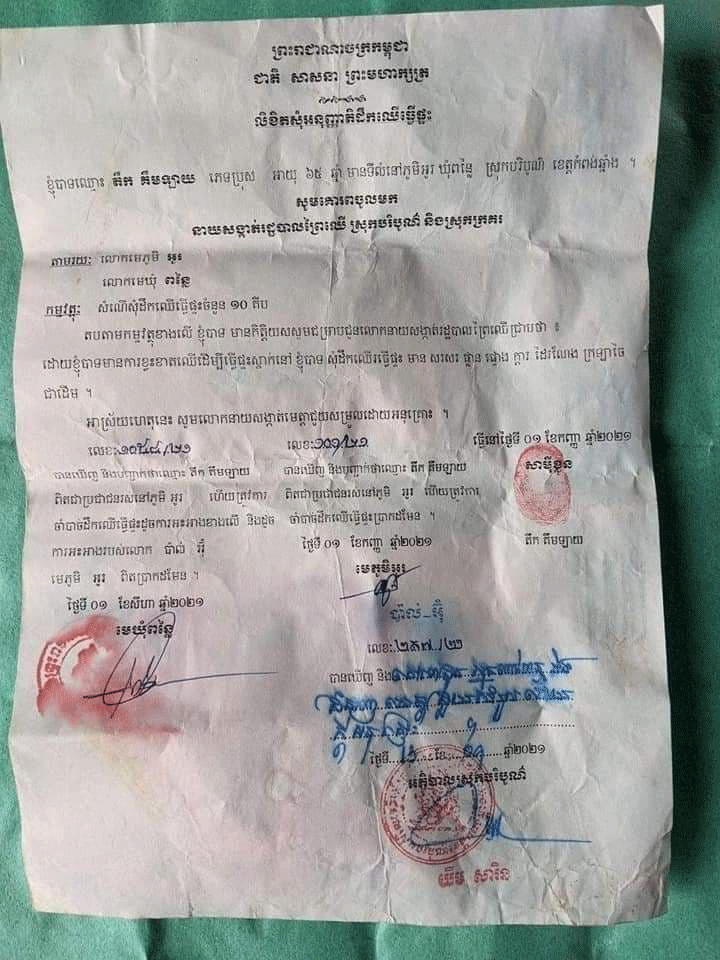 ព្រះរាជាណាចក្រកម្ពុជា
ជាតិ សាសនា ព្រះមហាក្សត្រ
លិខិតសុំអនុញ្ញាតិដឹកឈើធ្វើផ្ទះ
ខ្ញុំបាទឈ្មោះ តឹក គឹមឡាយ ភេទប្រុស អាយុ ៦៥ ឆ្នាំ មានទីលំនៅភូមិអូរ ឃុំពន្លៃ ស្រុកបរិបូណ៌ ខេត្តកំពង់ឆ្នាំង ។
សូមគោរពចូលមក
នាយសង្កាត់រដ្ឋបាលព្រៃឈើ ស្រុកបរិបូណ៌ និងស្រុកក្រគរ
តាមរយៈ លោកមេភូមិ អូរ
លោកមេឃុំ ពន្លៃ
កម្មវត្ថុៈ សំណើសុំដឹកឈើធ្វើផ្ទះចំនួន ១០ គីប
តបតាមកម្មវត្ថុខាងលើ ខ្ញុំបាទ មានកិត្តិយសសូមជម្រាបជូនលោកនាយសង្កាត់រដ្ឋបាលព្រៃឈើ ជ្រាបថា ៖
ដោយខ្ញុំបាទមានការខ្វះខាតឈើដើម្បីធ្វើផ្ទះស្នាក់នៅ ខ្ញុំបាទ សុំដឹកឈើធ្វើផ្ទះ មាន សរសរ ផ្លាន ផ្ទោង ក្តារ ដៃរណែង ក្រឡាចៃ
ជាដើម ។
អាស្រ័យហេតុនេះ សូមលោកនាយសង្កាត់មេត្តាជួយសម្រួលដោយអនុគ្រោះ ។
លេខៈ លេខៈ១០១/២១ ធ្វើនៅថ្ងៃទី ០១ ខែកញ្ញា ឆ្នាំ២០២១
បានឃើញ និងបញ្ជាក់ថាឈ្មោះ តឹក គឹមឡាយ បានឃើញ និងបញ្ជាក់ថាឈ្មោះ តឹក គឹមឡាយ សាម៉ីខ្លួន
ពិតជាប្រជាជនរស់នៅភូមិ អូរ ហើយត្រូវការ ពិតជាប្រជាជនរស់នៅភូមិ អូរ ហើយត្រូវការ
ចាំបាច់ដឹកឈើធ្វើផ្ទះដូចការអះអាងខាងលើ និងដូច ចាំបាច់ដឹកឈើធ្វើផ្ទះប្រាកដមែន ។
ការអះអាងរបស់លោក ប៉ាល់ អ៊ុំ ថ្ងៃទី ០១ ខែកញ្ញា ឆ្នាំ២០២១ តឹក គឹមឡាយ
មេភូមិ អូរ ពិតប្រាកដមែន ។ មេភូមិអូរ
ថ្ងៃទី ០១ ខែសីហា ឆ្នាំ២០២១
មេឃុំពន្លៃ ប៉ាល់-អ៊ុំ
លេខៈ២៣៧/២១
បានឃើញ និង
ថ្ងៃទី ខែ ឆ្នាំ២០២១
អភិបាលស្រុកបរិបូណ៌
យឹម សារិន